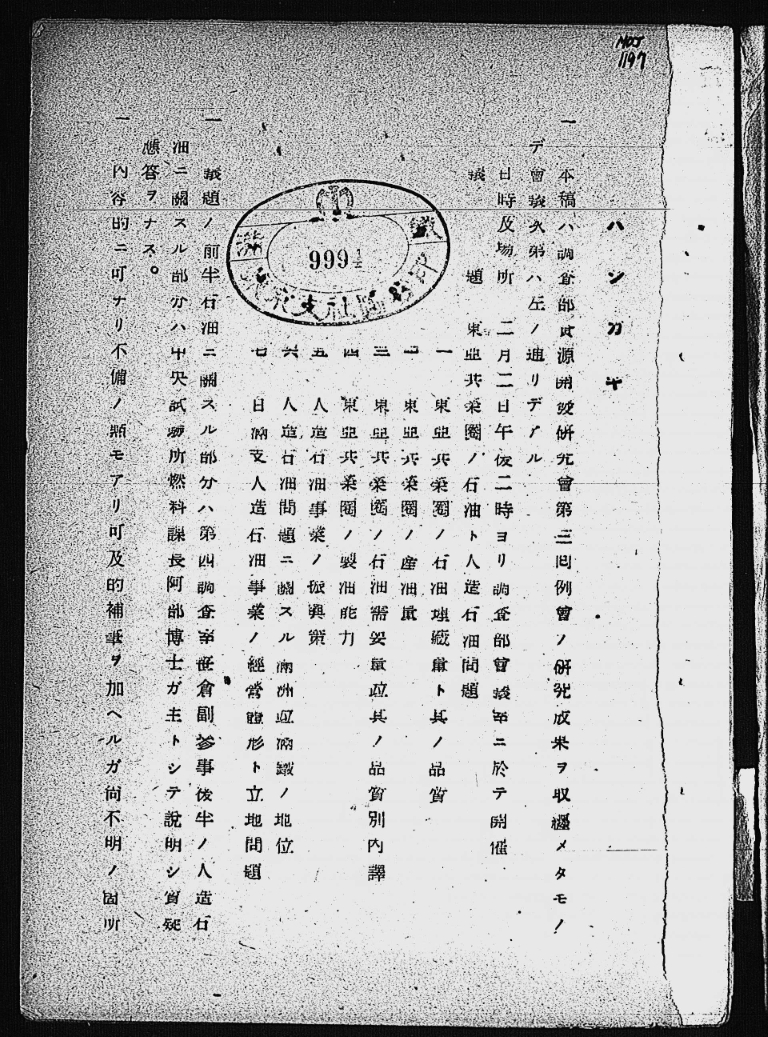 MOJ
1197
ハシガキ
一 本稿ハ調査部資源開發研究會第三回例會ノ研究成果ヲ取纒メタモノ
デ會議次第ハ左ノ通リデアル
日時及場所 二月二日午後二時ヨリ調査部會議室ニ於テ開催
議題 東亞共榮圈ノ石油ト人造石油問題
一 東亞共榮圈ノ石油埋藏量ト其ノ品質
二 東亞共榮圈ノ産油量
三 東亞共榮圈ノ石油需要量竝其ノ品質別內譯
四 東亞共榮圈ノ製油能力
五 人造石油事業ノ振興策
六 人造石油問題ニ關スル滿洲竝滿鐵ノ地位
七 日滿支人造石油事業ノ經營體形ト立地問題
一 議題ノ前半石油ニ關スル部分ハ第四調査室 倉副參事後半ノ人造石
油ニ關スル部分ハ中央試驗所燃料課長阿部博士ガ主トシテ說明シ質疑
應答ヲナス。
一 內容的ニ可ナリ不備ノ點モアリ可及的補筆ヲ加ヘルガ尙不明ノ箇所
999